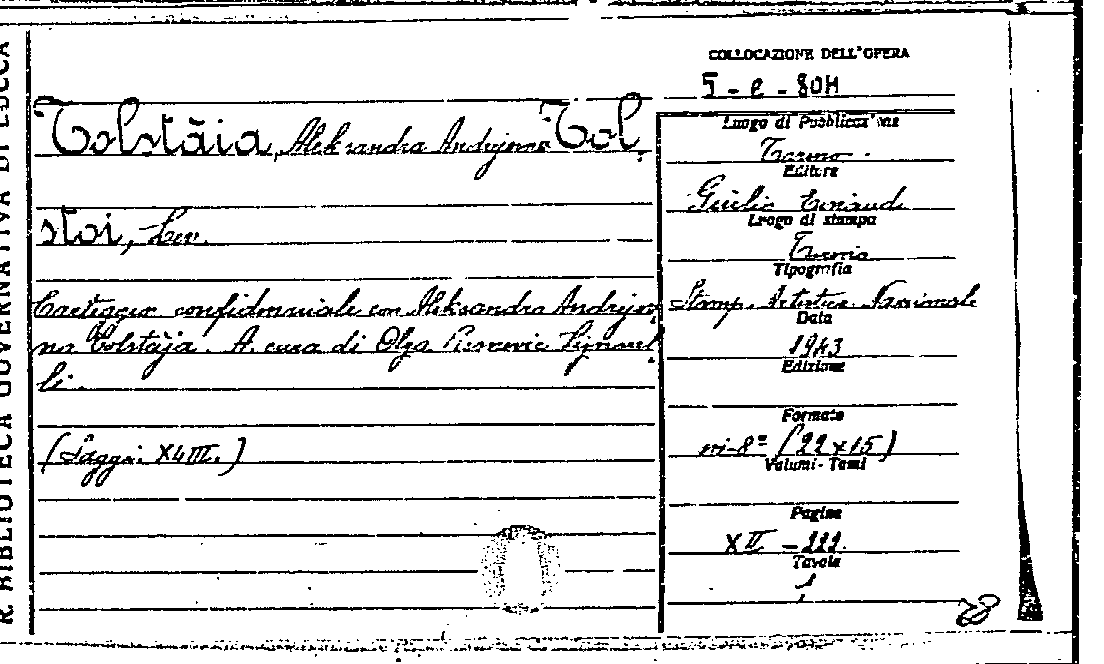 R. BIBLIOTECA GOVERNATIVA DI LUCCA
COLLOCAZIONE DELL'OPERA
Tolstàia, Aleksandra Andrejevna Tol
stoi, Lev.
Carteggio confidenziale con Aleksandra Andrejev
na Tolstàja. A cura di Olga Resnevic Signorel
li.
(Saggi. XLIII.)
Luogo di Pubblicazione
Torino.
Editore
Giulio Einaudi
Luogo di stampa
Torino
Tipografia
Stamp. Artistica Nazionale
Data
1943
Edizione
Formato
in-8º (22x15)
Volumi - Tomi
Pagine
XII - 222.
Tavole
1